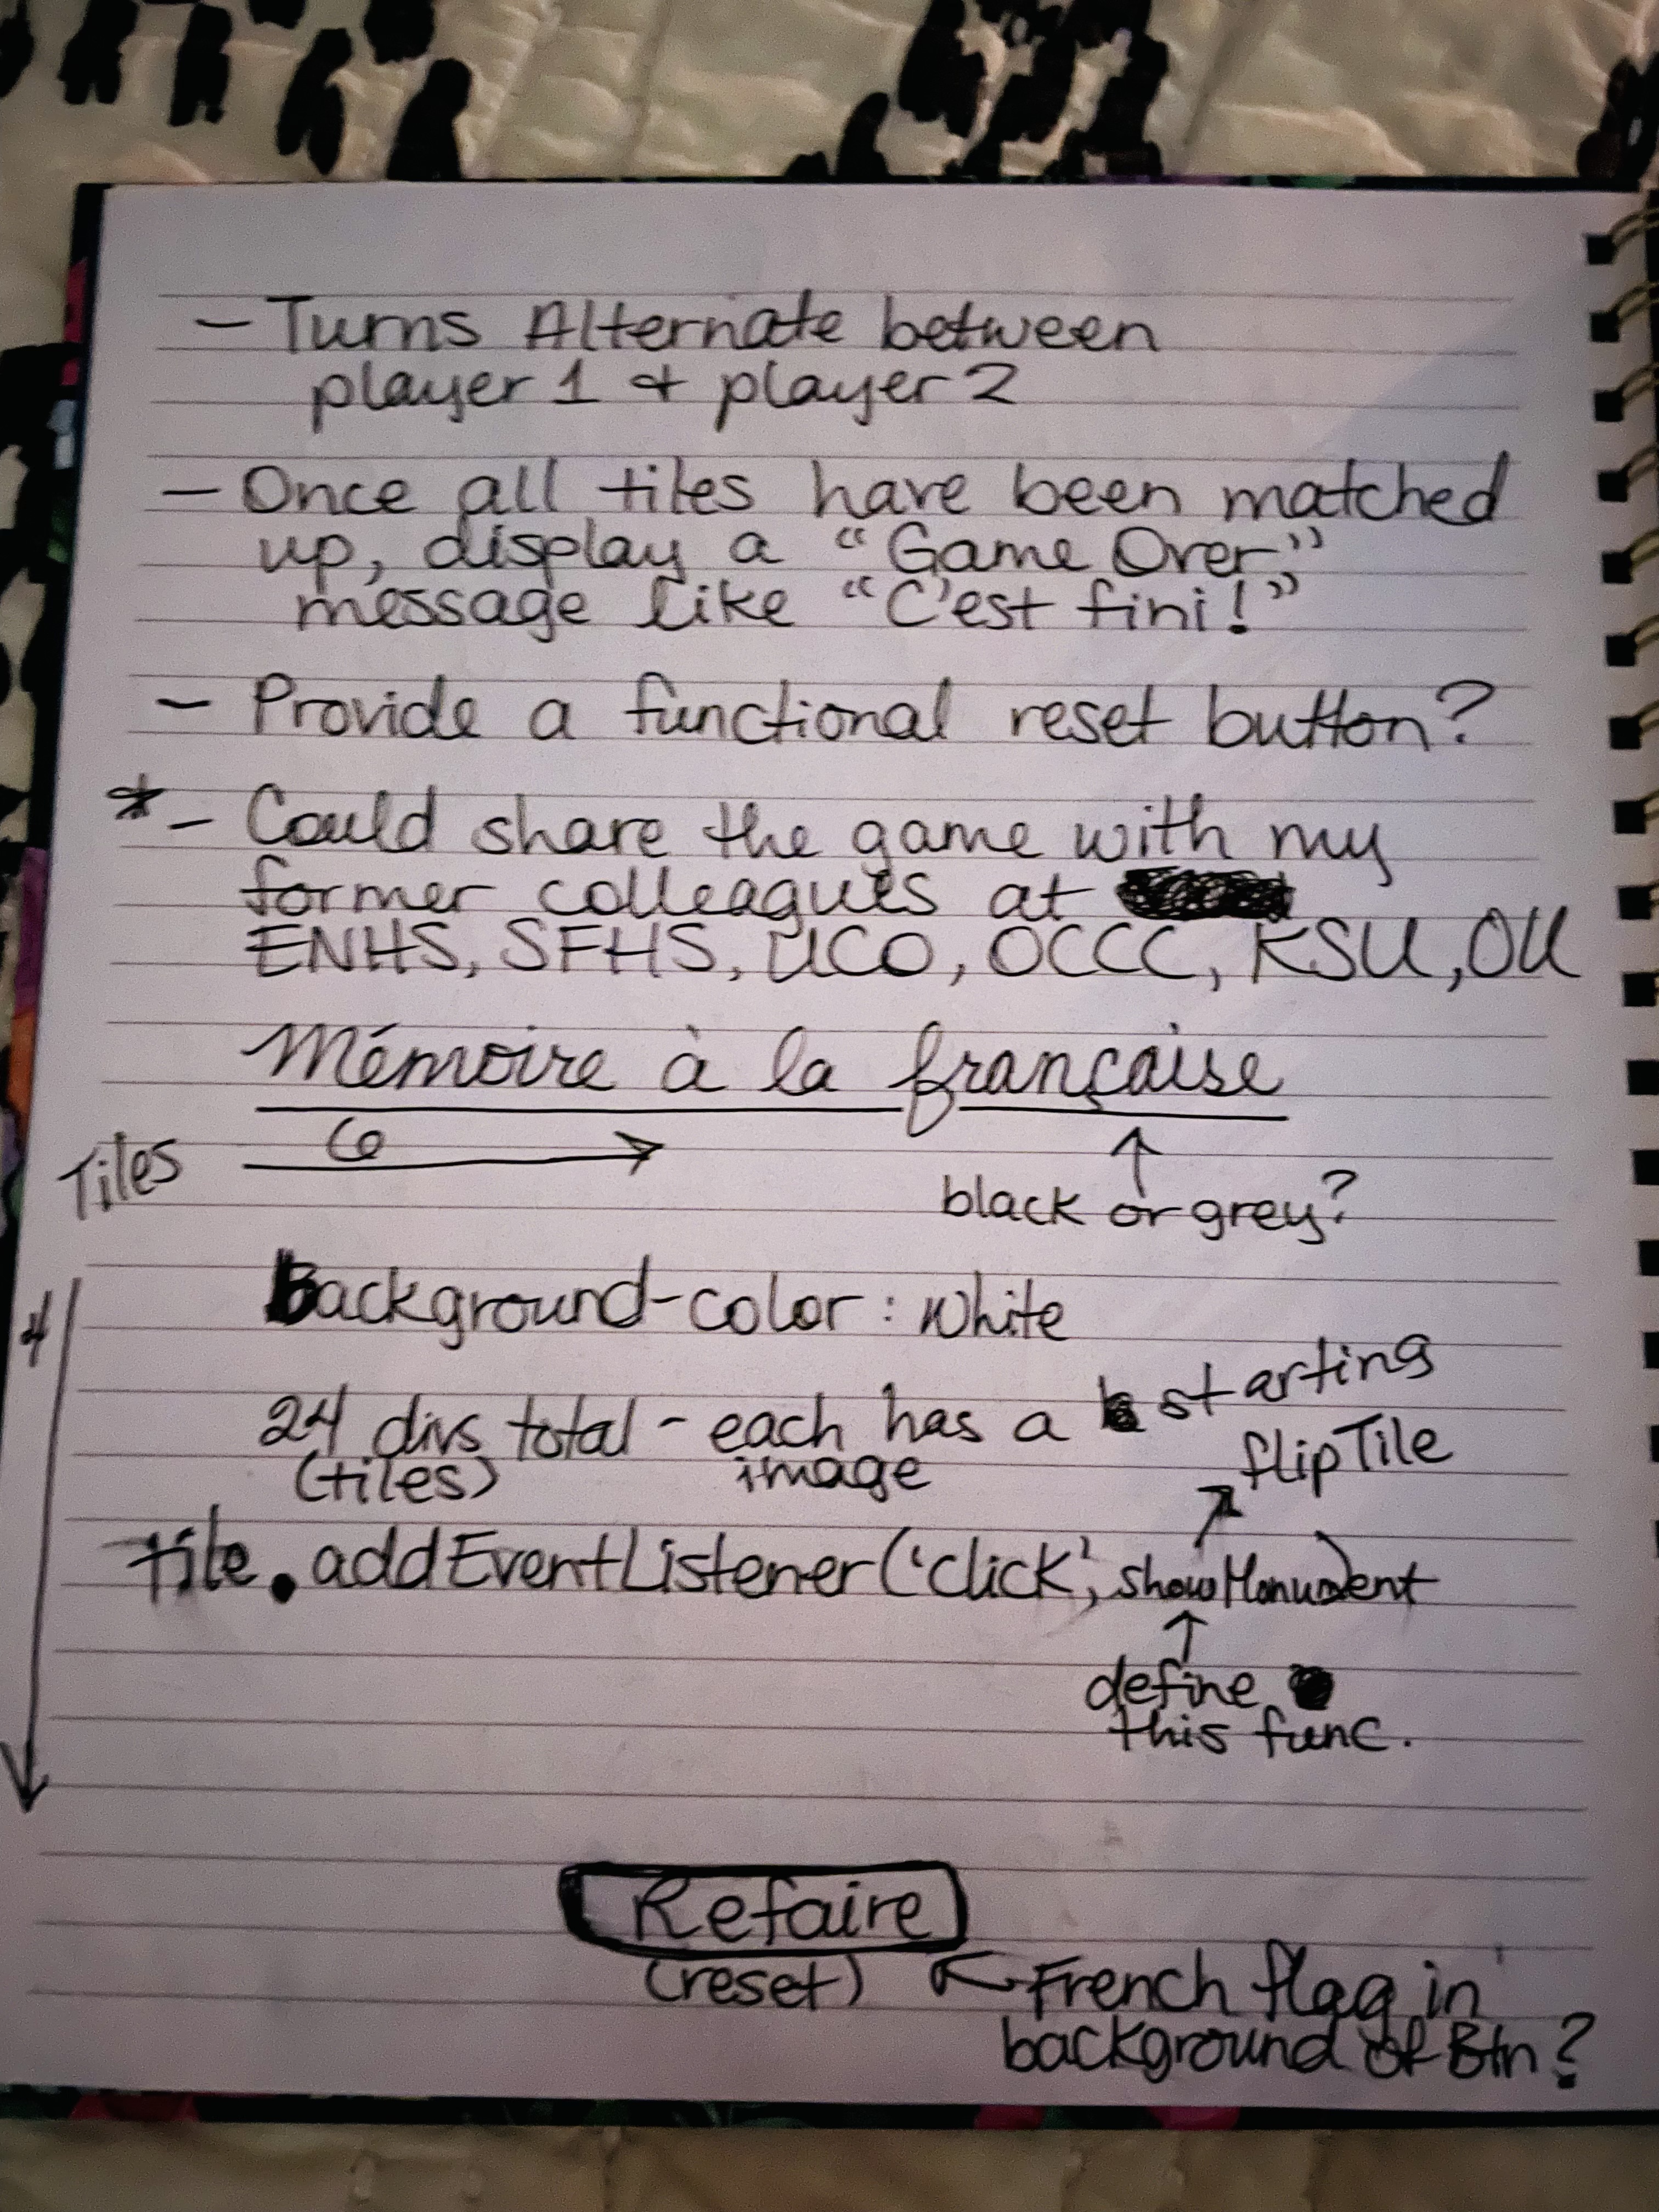 - Turns Alternate between
player 1 & player 2
- Once all tiles have been matched
up, display a "Game Over,"
message like "C'est fini!"
- Provide a functional reset button?
* - Could share the game with my
former colleagues at
ENHS, SFHS, UCO, OCCC, KSU, OU
Mémoire à la française
Tiles 6
black or grey?
Background-color: White
4
24 divs total - each has a starting
(tiles) image
flipTile
tile.addEventListener('click', showMonument)
define
this func.
Refaire
(reset)
French flag in
background of Btn?